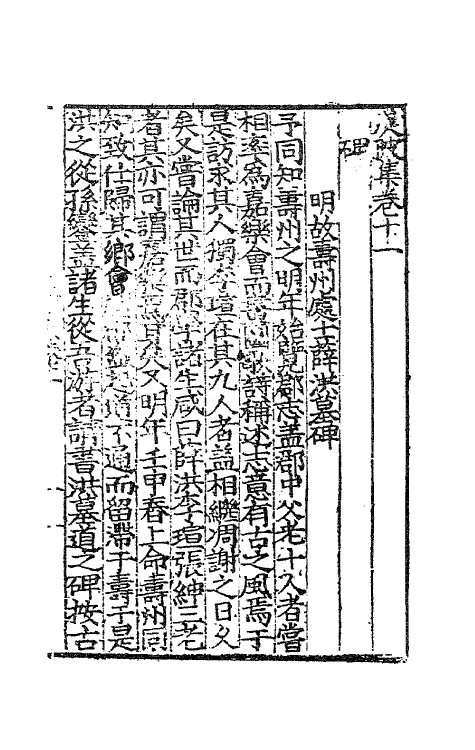 渼陂集卷十一
碑
明故壽州處士薛洪墓碑
予同知壽州之明年始覽郡志盖郡中父老十人者嘗
相率為嘉樂會而賦詩稱述志意有古之風焉于
是訪求其人獨李瑄在其九人者盖相繼凋謝之日久
矣又嘗論其世而郡學諸生咸曰薛洪李瑄張紳三老
者其亦可謂又明年壬申春上命壽州同
知致仕歸其鄉會道不通而留滯于壽于是
洪之從孫鑾盖諸生從吾游者請書洪墓道之碑按古